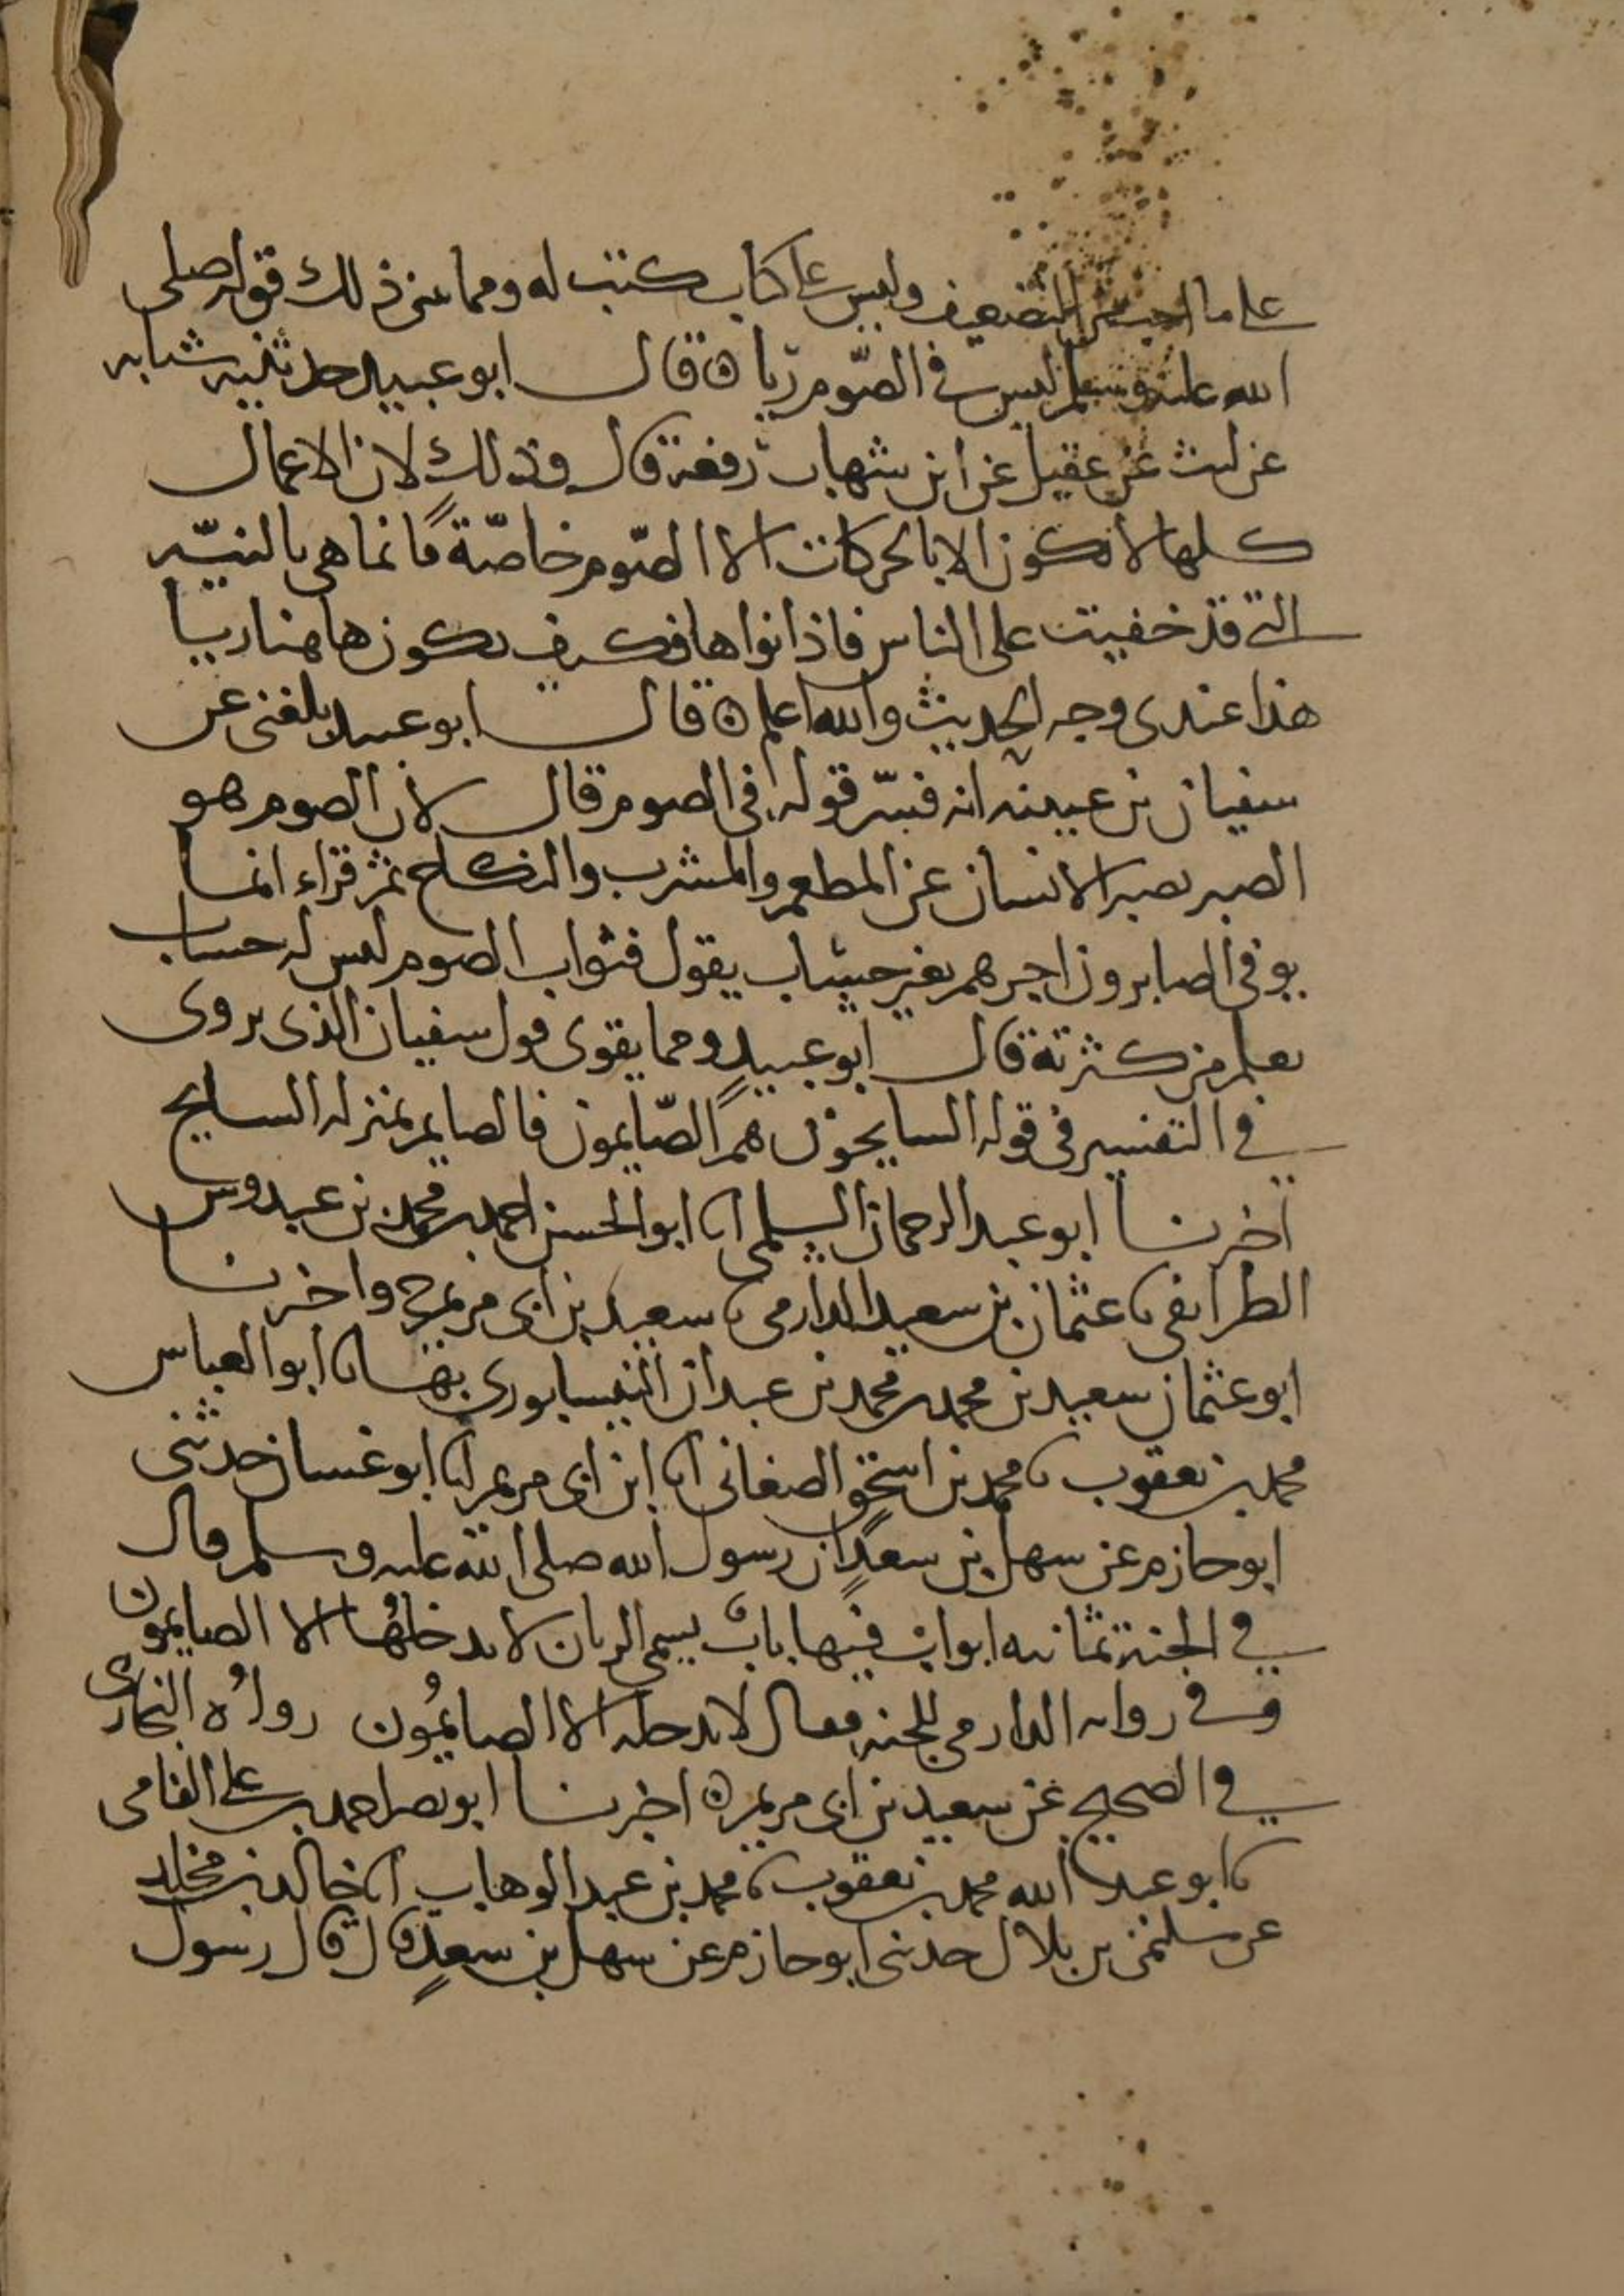 على ما احب من التضعيف وليس على كتاب كتب له ومما يبين ذلك قوله صلى
الله عليه وسلم ليس في الصّوم رياء ه قال ابو عبيد حدثنيه شبابه
عن ليث عن عقيل عن ابن شهاب رفعه قال وذلك لان الاعمال
كلها لا تكون الا بالحركات الا الصّوم خاصّةً فانما هي بالنيّه
التي قد خفيت على الناس فاذا نواها فكيف يكون هاهنا ريا
هذا عندي وجه الحديث والله اعلم ه قال ابو عبيد بلغني عن
سفيان بن عيينه انه فسّر قوله في الصوم قال لان الصوم هو
الصبر يصبر الانسان عن المطعم والمشرب والنكاح ثم قراء انما
يوفى الصابرون اجرهم بغير حساب يقول فثواب الصوم ليس له حساب
يعلم من كثرته قال ابو عبيد ومما يقوى قول سفيان الذي يروى
في التفسير في قوله السايحون هم الصّايمون فالصايم بمنزله السايح
اخبرنا ابو عبد الرحمان السلمي انا ابو الحسن احمد بن محمد بن عبدوس
الطرايفي نا عثمان بن سعيد الدارمي نا سعيد بن ابي مريم ح واخبرنا
ابو عثمان سعيد بن محمد بن محمد بن عبدان النيسابوري بها نا ابو العباس
محمد بن يعقوب نا محمد بن اسحق الصغاني انا ابن ابي مريم انا ابو غسان حدثني
ابو حازم عن سهل بن سعدٍ ان رسول الله صلى الله عليه وسلم قال
في الجنة ثمانيه ابواب فيها بابٌ يسمى الريان لا يدخلهُ الا الصايمون
وفي روايه الدارمي للجنه وقال لا يدخله الا الصايمُون رواهُ البخارى
في الصحيح عن سعيد بن ابي مريم ه اخبرنا ابو نصر احمد بن علي الفامي
نا ابو عبد الله محمد بن يعقوب نا محمد بن عبد الوهاب انا خالد بن مخلد
عن سليمن بن بلال حدثني ابو حازم عن سهل بن سعدٍ قال قال رسول